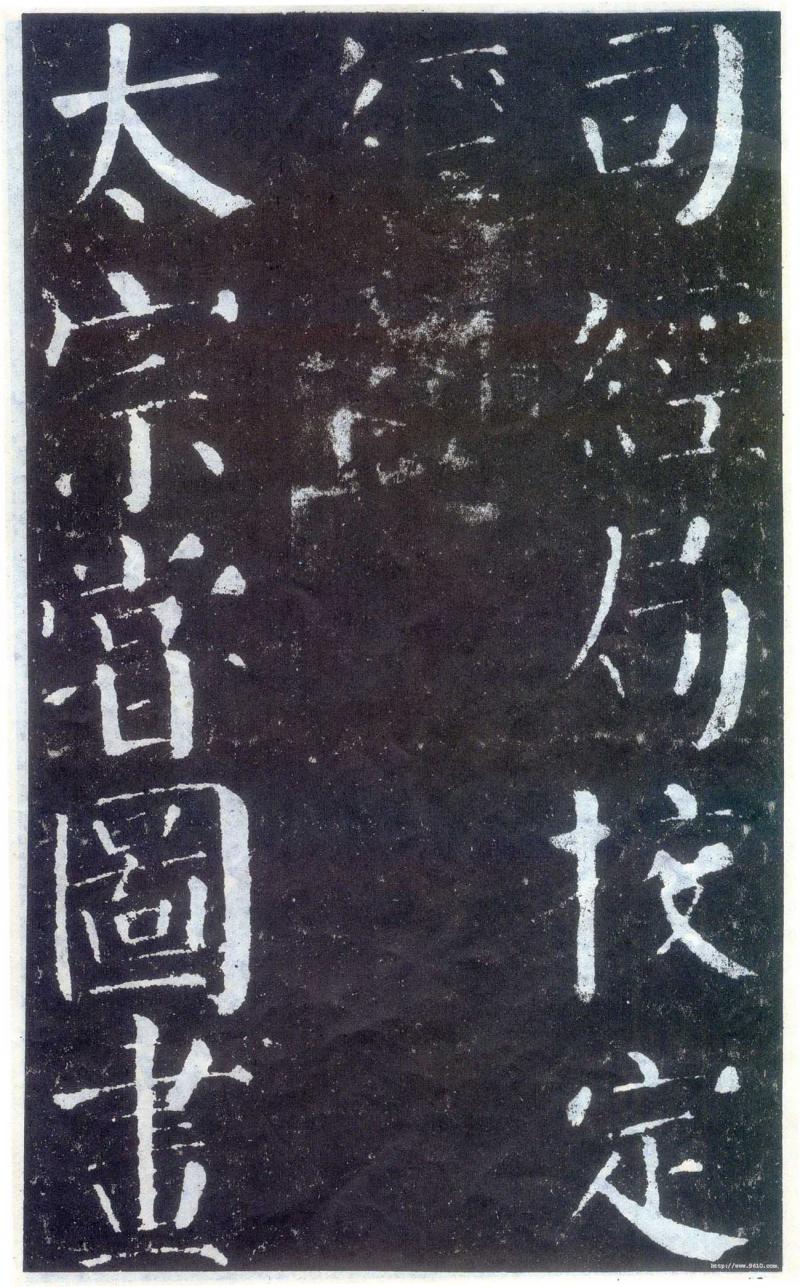 司經局校定
經
太宗嘗圖畫
http://www.9610.com